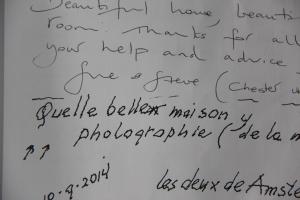 Beautiful home, beauti
room. Thanks for all
your help and advice
Sue & Steve (Chester
Quelle belle maison y
photographie (de la m
↑↑
10.9.2014
Les deux de Amste